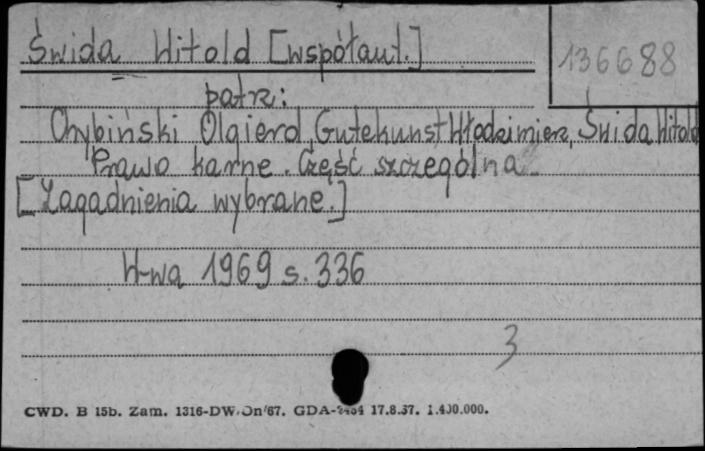 Świda Witold [współaut.]
136688
patrz:
Chybiński Olgierd, Gutekunst Włodzimierz, Świda Witold
Prawo karne. Część szczególna
[Zagadnienia wybrane.]
W-wa 1969 s. 336
3
CWD. B 15b. Zam. 1316-DW/Dn/67. GDA- 17.8.67. 1.400.000.